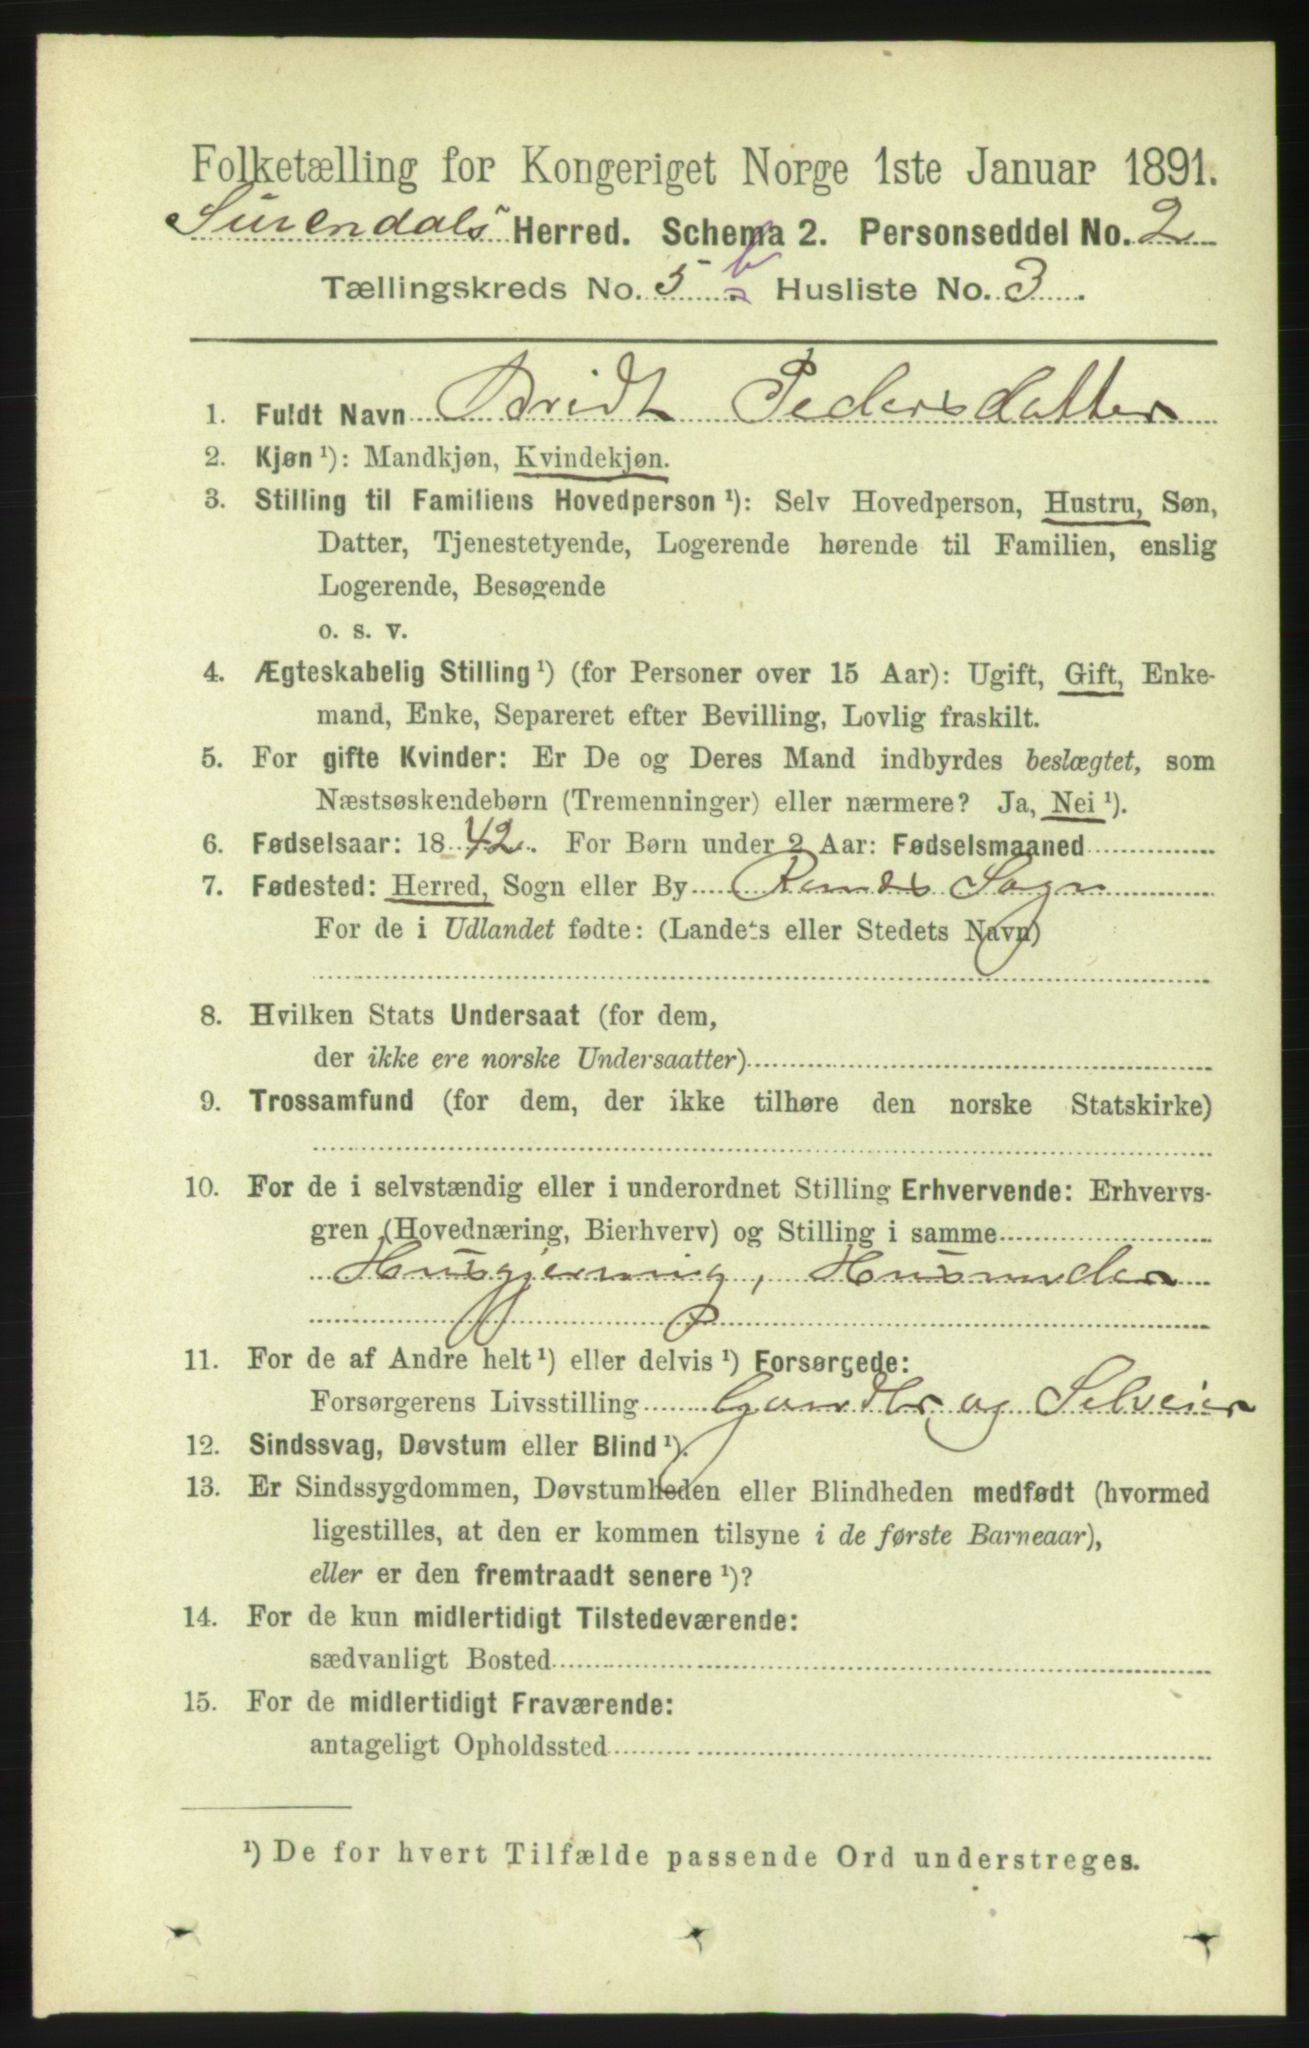 Folketælling for Kongeriget Norge 1ste Januar 1891.
Surendals Herred. Schema 2. Personseddel No. 2
Tællingskreds No. 5 b. Husliste No. 3.
1. Fuldt Navn Bridt Pedersdatter
2. Kjøn ¹): Mandkjøn, Kvindekjøn.
3. Stilling til Familiens Hovedperson ¹): Selv Hovedperson, Hustru, Søn,
Datter, Tjenestetyende, Logerende hørende til Familien, enslig
Logerende, Besøgende
o. s. v.
4. Ægteskabelig Stilling ¹) (for Personer over 15 Aar): Ugift, Gift, Enke-
mand, Enke, Separeret efter Bevilling, Lovlig fraskilt.
5. For gifte Kvinder: Er De og Deres Mand indbyrdes beslægtet, som
Næstsøskendebørn (Tremenninger) eller nærmere? Ja, Nei ¹).
6. Fødselsaar: 1842. For Børn under 2 Aar: Fødselsmaaned
7. Fødested: Herred, Sogn eller By Ranæs Sogn
For de i Udlandet fødte: (Landets eller Stedets Navn)
8. Hvilken Stats Undersaat (for dem,
der ikke ere norske Undersaatter)
9. Trossamfund (for dem, der ikke tilhøre den norske Statskirke)
10. For de i selvstændig eller i underordnet Stilling Erhvervende: Erhvervs-
gren (Hovednæring, Bierhverv) og Stilling i samme
Husgjerning, Husmoder
11. For de af Andre helt ¹) eller delvis ¹) Forsørgede:
Forsørgerens Livsstilling Gaardbr. og Selveier
12. Sindssvag, Døvstum eller Blind ¹).
13. Er Sindssygdommen, Døvstumheden eller Blindheden medfødt (hvormed
ligestilles, at den er kommen tilsyne i de første Barneaar),
eller er den fremtraadt senere ¹)?
14. For de kun midlertidigt Tilstedeværende:
sædvanligt Bosted
15. For de midlertidigt Fraværende:
antageligt Opholdssted
¹) De for hvert Tilfælde passende Ord understreges.